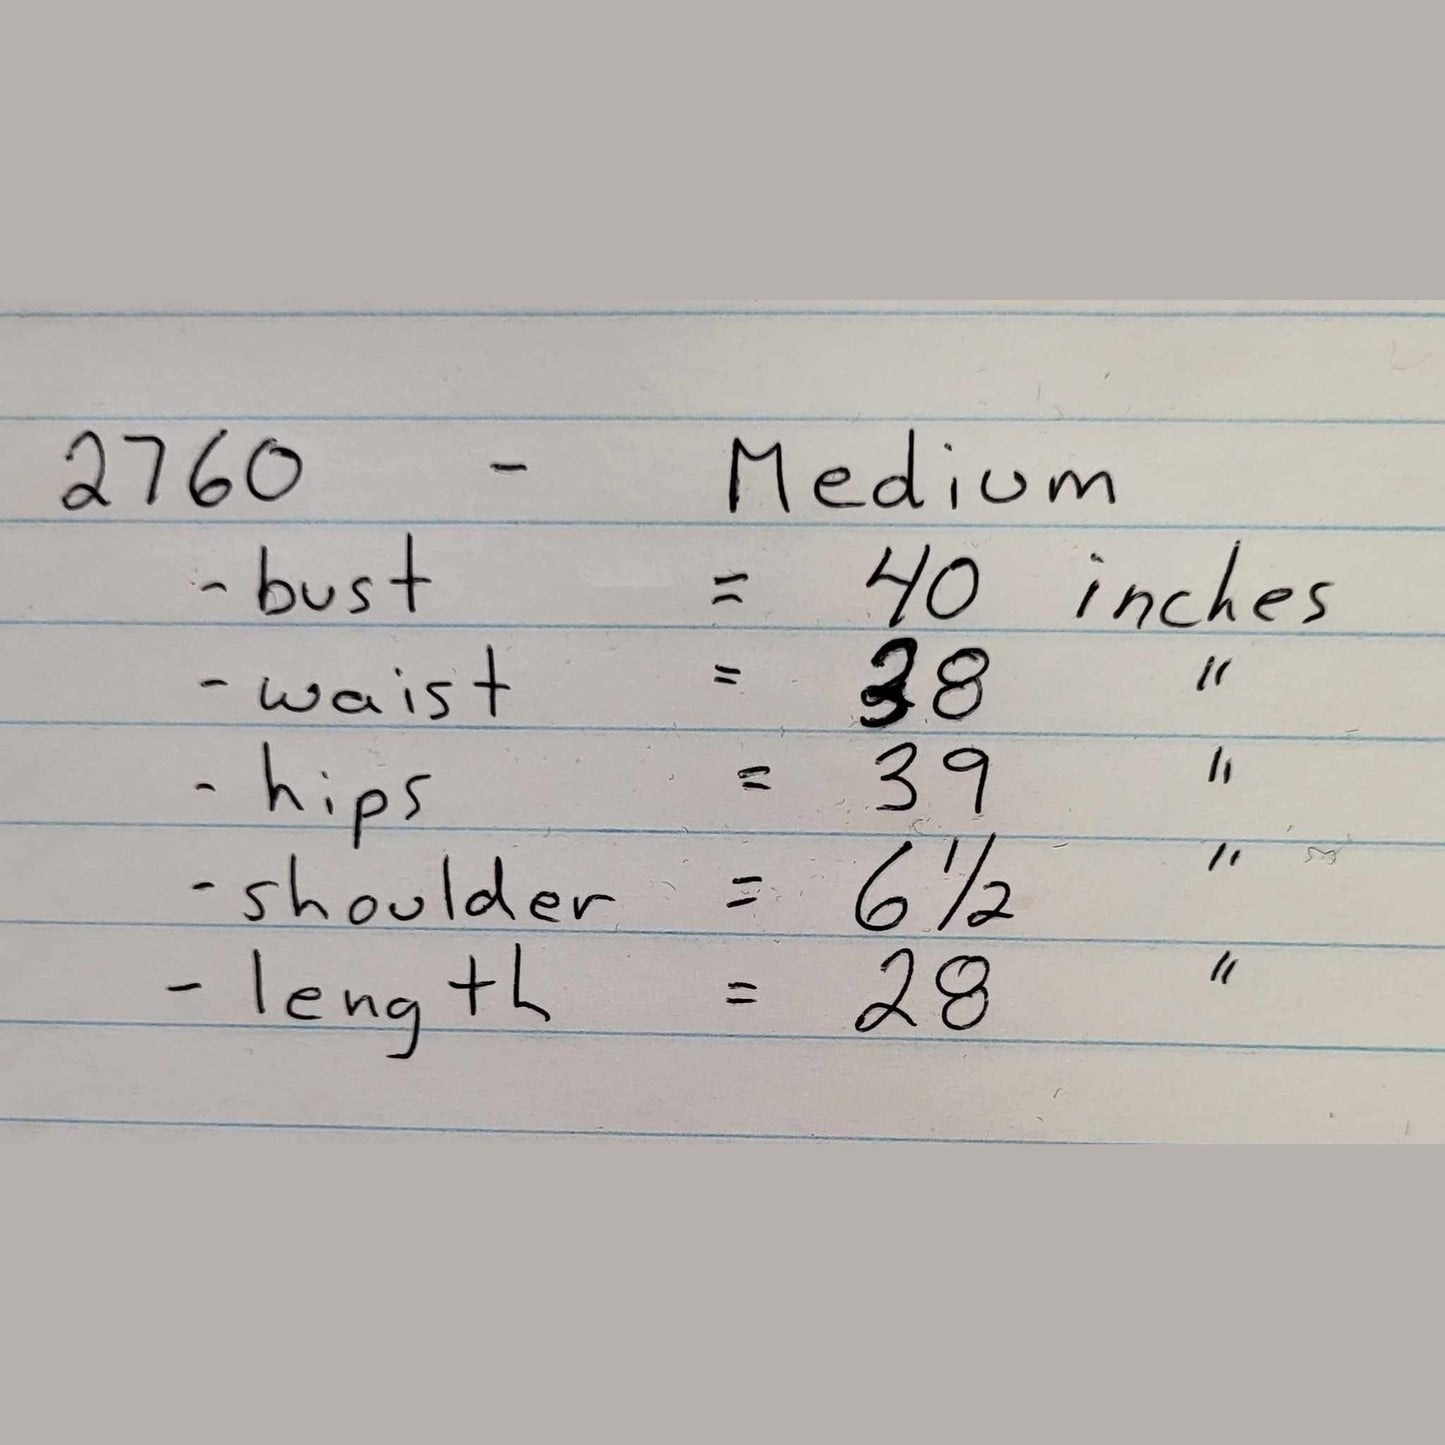 2760 - Medium
- bust = 40 inches
- waist = 38 "
- hips = 39 "
- shoulder = 6 1/2 "
- length = 28 "